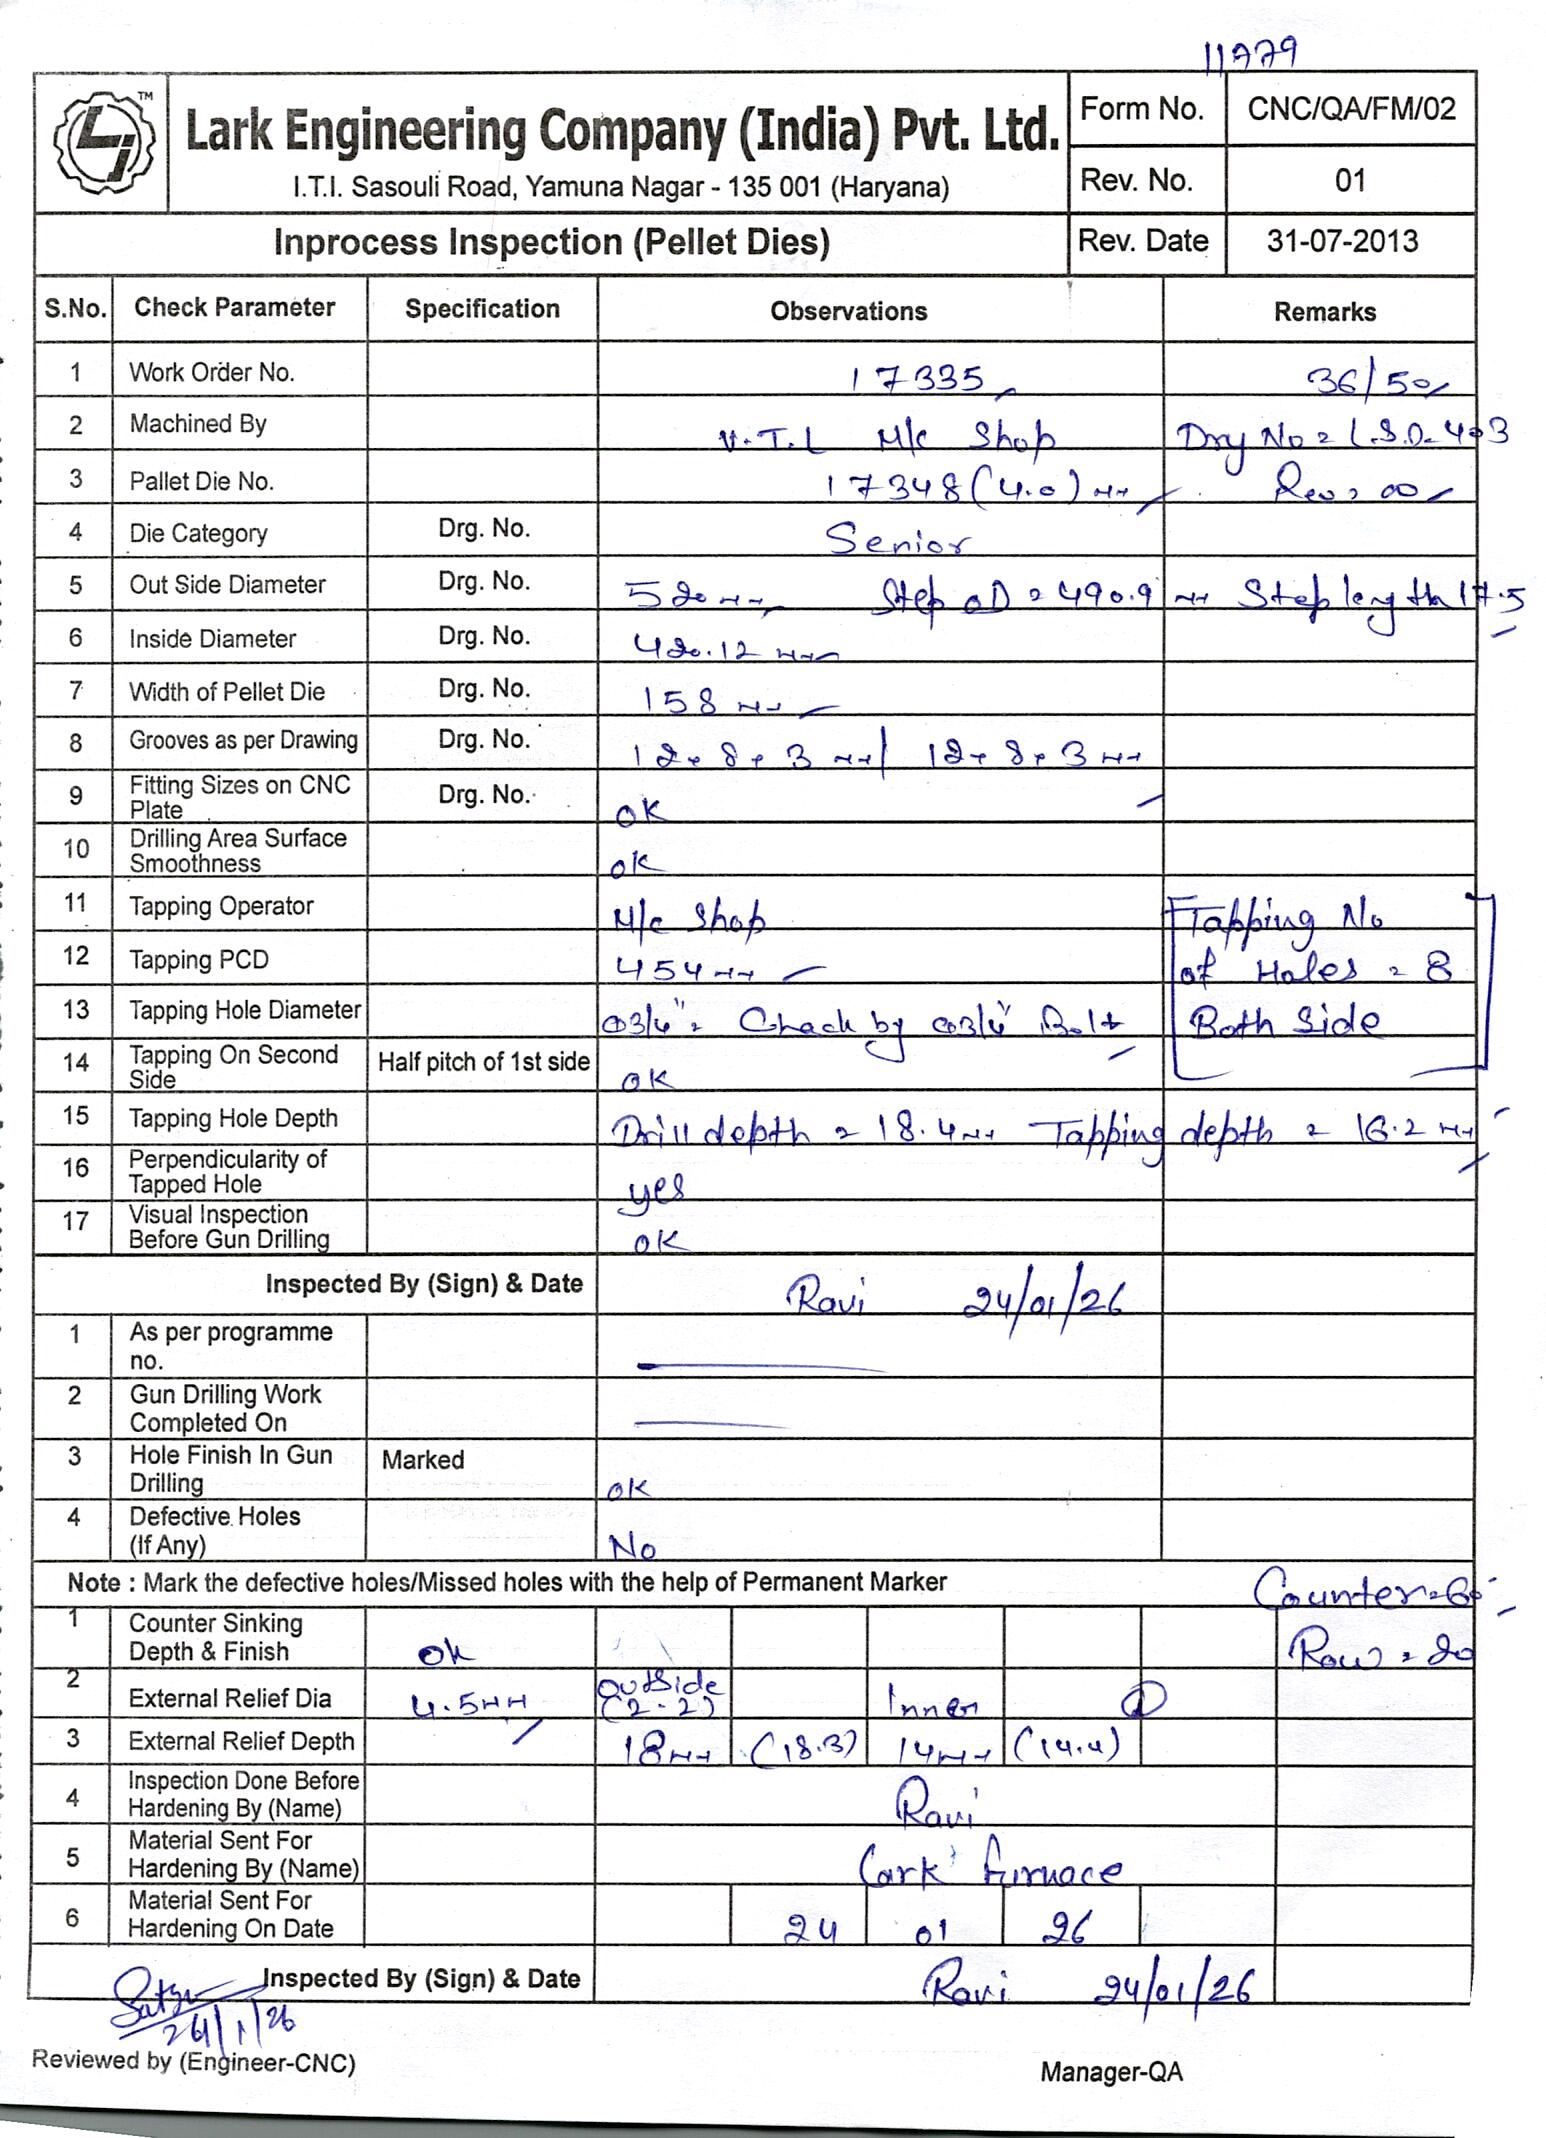 11779
TM
Lark Engineering Company (India) Pvt. Ltd.
I.T.I. Sasouli Road, Yamuna Nagar - 135 001 (Haryana)
Form No. CNC/QA/FM/02
Rev. No. 01
Inprocess Inspection (Pellet Dies) Rev. Date 31-07-2013
S.No. Check Parameter Specification Observations Remarks
1 Work Order No. 17335 36/50
2 Machined By V.T.L M/c Shop Drg No = L.S.D-403
3 Pallet Die No. 17348 (4.0) mm Rev = 00
4 Die Category Drg. No. Senior
5 Out Side Diameter Drg. No. 520 mm Step OD = 490.9 mm Step length 17.5
6 Inside Diameter Drg. No. 420.12 mm
7 Width of Pellet Die Drg. No. 158 mm
8 Grooves as per Drawing Drg. No. 12 x 8 x 3 mm / 12 x 8 x 3 mm
9 Fitting Sizes on CNC Plate Drg. No. OK
10 Drilling Area Surface Smoothness OK
11 Tapping Operator M/c Shop Tapping No
12 Tapping PCD 454 mm of Holes = 8
13 Tapping Hole Diameter Ø3/4" = Chack by Ø3/4" Bolt Both Side
14 Tapping On Second Side Half pitch of 1st side OK
15 Tapping Hole Depth Drill depth = 18.4 mm Tapping depth = 16.2 mm
16 Perpendicularity of Tapped Hole yes
17 Visual Inspection Before Gun Drilling OK
Inspected By (Sign) & Date Ravi 24/01/26
1 As per programme no.
2 Gun Drilling Work Completed On
3 Hole Finish In Gun Drilling Marked OK
4 Defective Holes (If Any) No
Note : Mark the defective holes/Missed holes with the help of Permanent Marker Counter = 60°
1 Counter Sinking Depth & Finish ok Row = 20
2 External Relief Dia 4.5 mm Outside (2-2) Inner
3 External Relief Depth 18 mm (18.3) 14 mm (14.4)
4 Inspection Done Before Hardening By (Name) Ravi
5 Material Sent For Hardening By (Name) Lark Furnace
6 Material Sent For Hardening On Date 24 01 26
Inspected By (Sign) & Date Ravi 24/01/26
24/1/26
Reviewed by (Engineer-CNC) Manager-QA